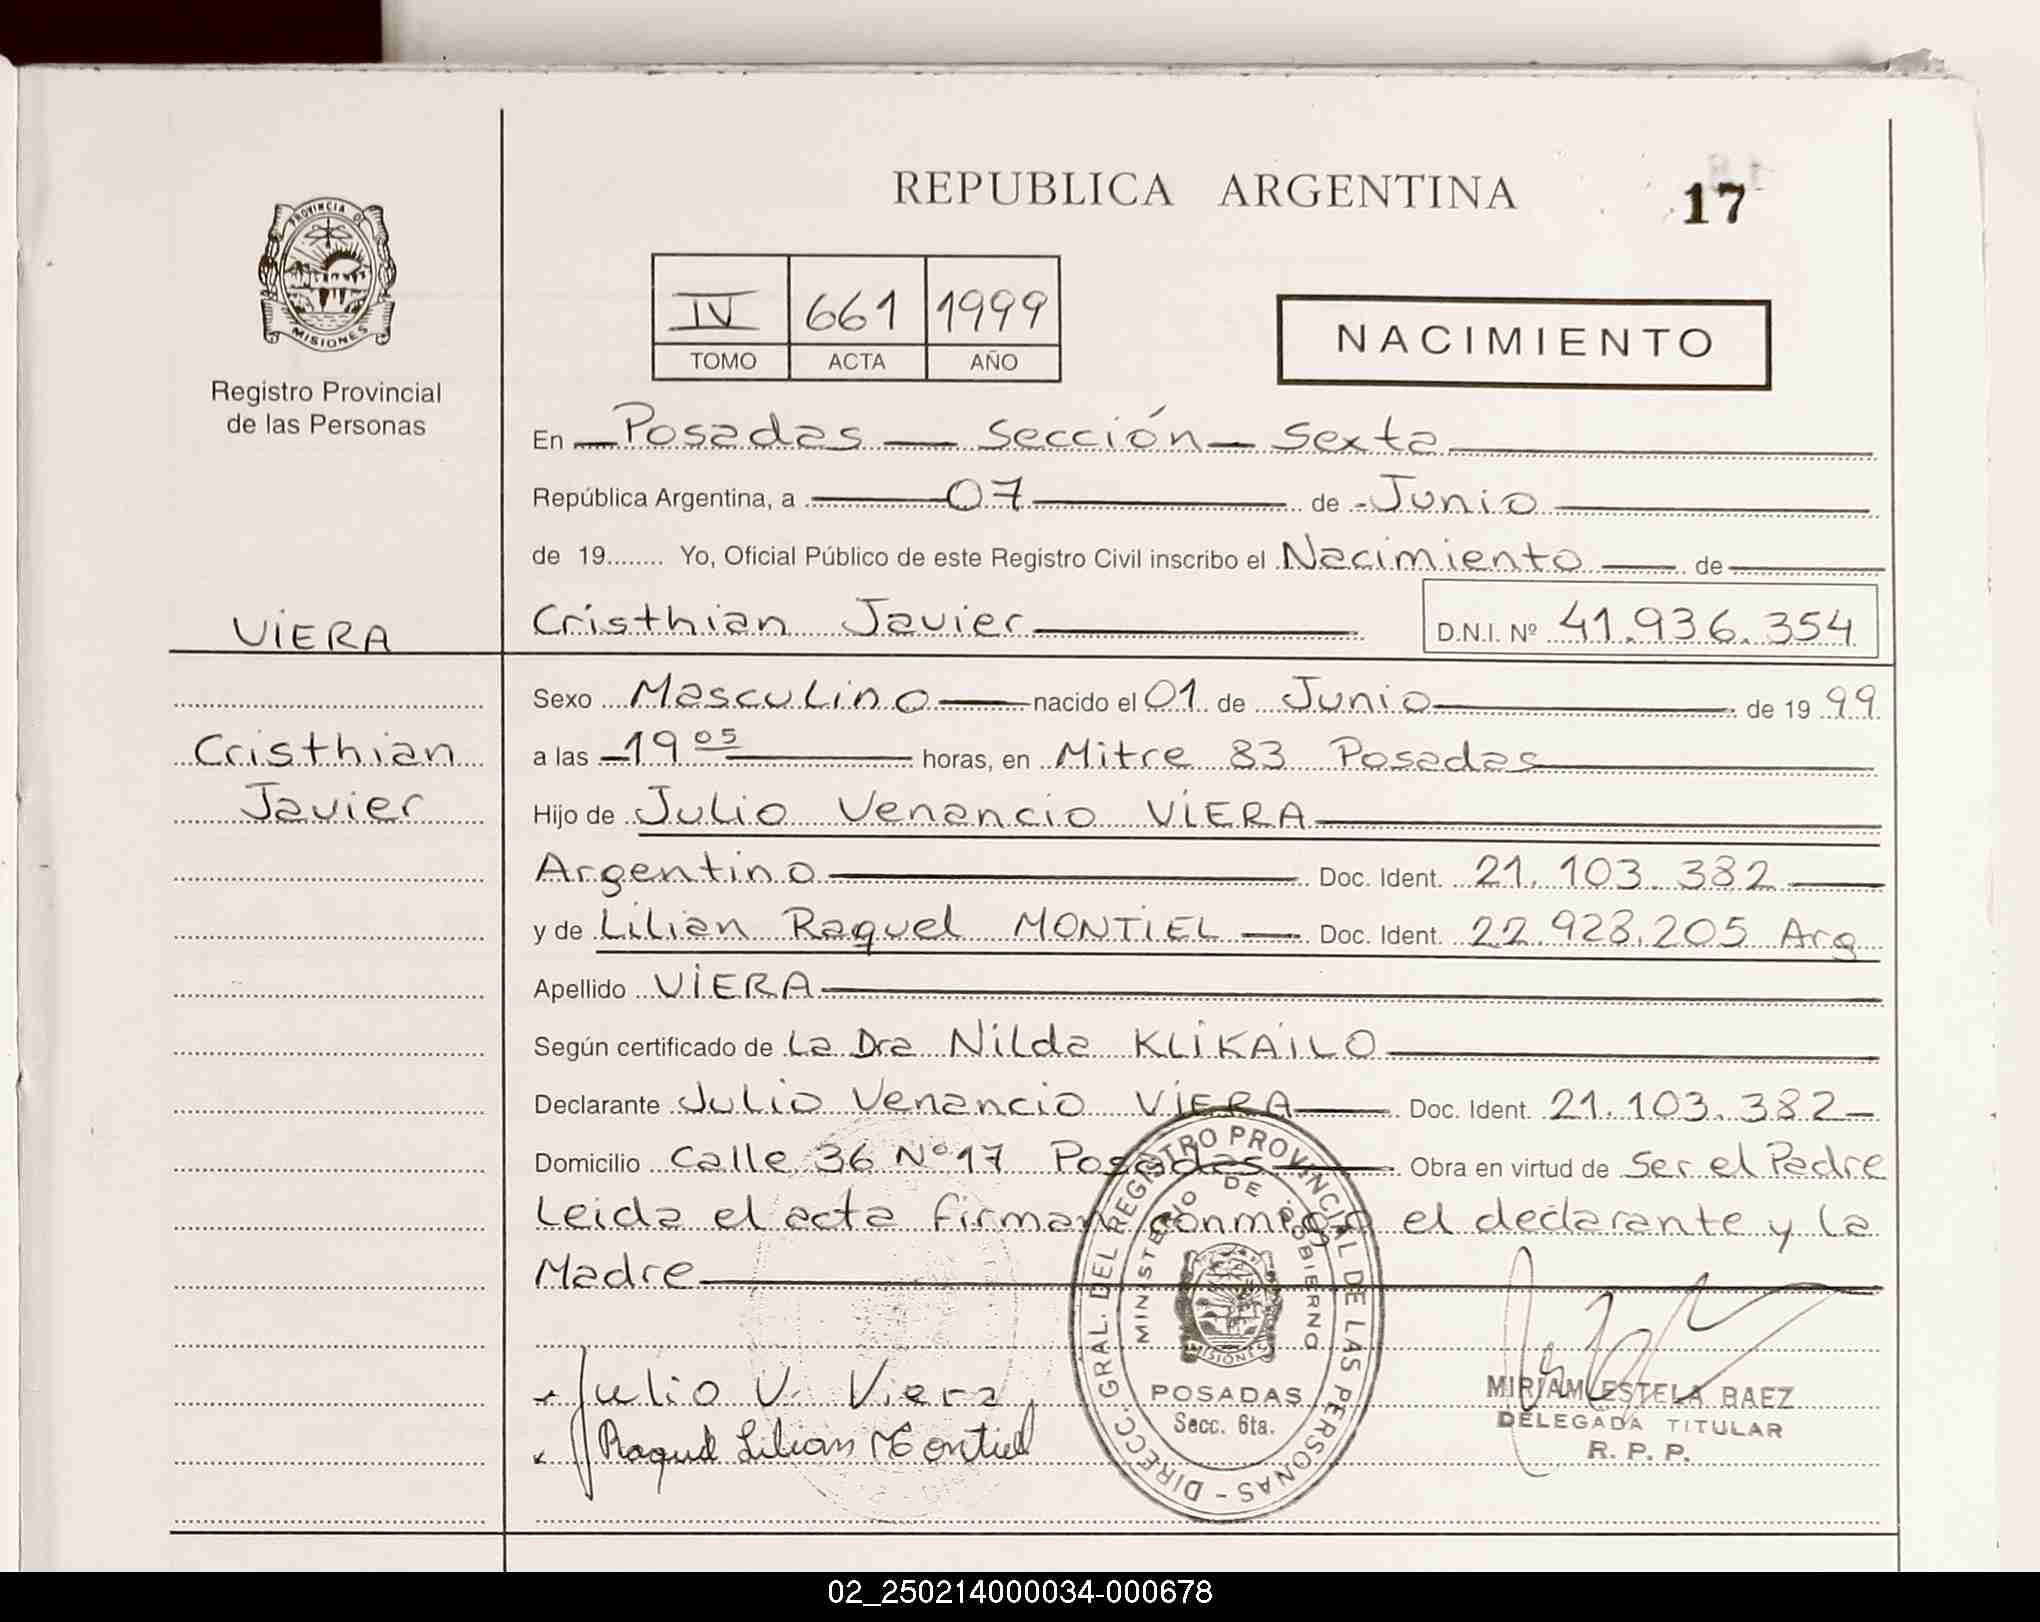 REPUBLICA ARGENTINA
17
PROVINCIA DE
MISIONES
Registro Provincial
de las Personas
IV 661 1999
TOMO ACTA AÑO
NACIMIENTO
En Posadas Sección Sexta
República Argentina, a 07 de Junio
de 19........ Yo, Oficial Público de este Registro Civil inscribo el Nacimiento de
VIERA
Cristhian Javier D.N.I. Nº 41.936.354
Sexo Masculino nacido el 01 de Junio de 1999
Cristhian
Javier
a las 19 05 horas, en Mitre 83 Posadas
Hijo de Julio Venancio VIERA
Argentino Doc. Ident. 21.103.382
y de Lilian Raquel MONTIEL Doc. Ident. 22.928.205 Arg
Apellido VIERA
Según certificado de La Dra Nilda KLIKAILO
Declarante Julio Venancio VIERA Doc. Ident. 21.103.382
Domicilio Calle 36 Nº 17 Posadas Obra en virtud de Ser el Padre
Leida el acta firman conmigo el declarante y la
Madre
Julio V. Viera
Raquel Lilian Montiel
DIRECC. GRAL. DEL REGISTRO PROVINCIAL DE LAS PERSONAS
MINISTERIO DE GOBIERNO
MISIONES
POSADAS
Secc. 6ta.
MIRIAM ESTELA BAEZ
DELEGADA TITULAR
R. P. P.
02_250214000034-000678